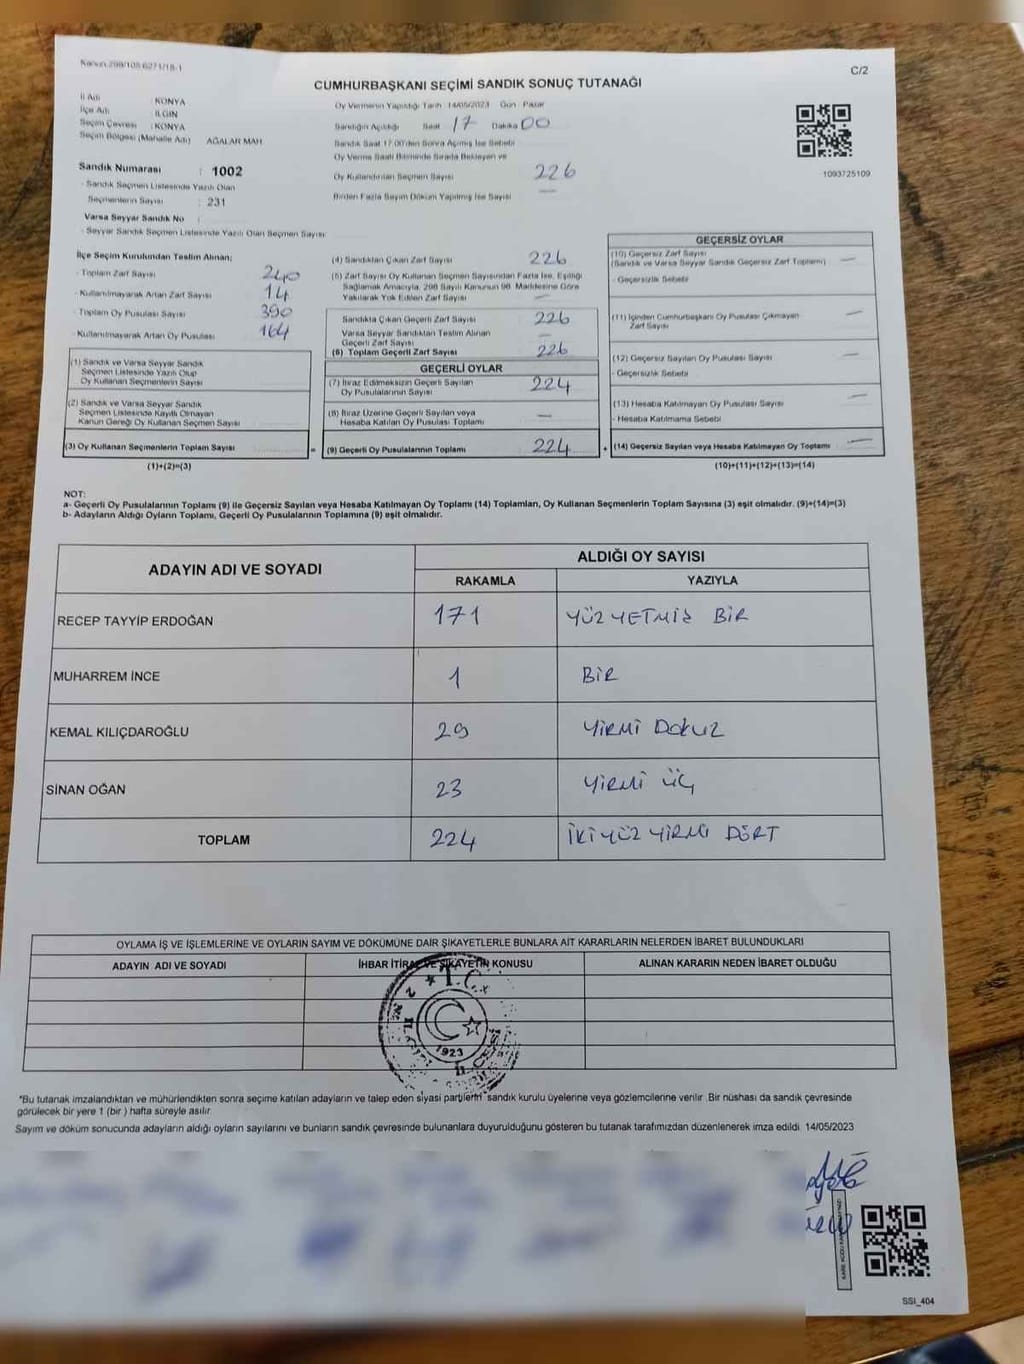 Kanun 298/105 6271/18-1
C/2
CUMHURBAŞKANI SEÇİMİ SANDIK SONUÇ TUTANAĞI
İl Adı KONYA
İlçe Adı ILGIN
Seçim Çevresi : KONYA
Seçim Bölgesi (Mahalle Adı) AĞALAR MAH
Sandık Numarası : 1002
- Sandık Seçmen Listesinde Yazılı Olan
Seçmenlerin Sayısı : 231
Varsa Seyyar Sandık No :
- Seyyar Sandık Seçmen Listesinde Yazılı Olan Seçmen Sayısı:
Oy Vermenin Yapıldığı Tarih 14/05/2023 Gün Pazar
Sandığın Açıldığı Saat 17 Dakika 00
Sandık Saat 17.00'den Sonra Açılmış İse Sebebi
Oy Verme Saati Bitiminde Sırada Bekleyen ve
Oy Kullandırılan Seçmen Sayısı 226
Birden Fazla Sayım Döküm Yapılmış İse Sayısı —
1093725109
İlçe Seçim Kurulundan Teslim Alınan;
- Toplam Zarf Sayısı 240
- Kullanılmayarak Artan Zarf Sayısı 14
- Toplam Oy Pusulası Sayısı 390
- Kullanılmayarak Artan Oy Pusulası 164
(1) Sandık ve Varsa Seyyar Sandık
Seçmen Listesinde Yazılı Olup
Oy Kullanan Seçmenlerin Sayısı
(2) Sandık ve Varsa Seyyar Sandık
Seçmen Listesinde Kayıtlı Olmayan
Kanun Gereği Oy Kullanan Seçmen Sayısı
(3) Oy Kullanan Seçmenlerin Toplam Sayısı
(1)+(2)=(3)
(4) Sandıktan Çıkan Zarf Sayısı 226
(5) Zarf Sayısı Oy Kullanan Seçmen Sayısından Fazla İse, Eşitliği
Sağlamak Amacıyla, 298 Sayılı Kanunun 98. Maddesine Göre
Yakılarak Yok Edilen Zarf Sayısı —
Sandıkta Çıkan Geçerli Zarf Sayısı 226
Varsa Seyyar Sandıktan Teslim Alınan
Geçerli Zarf Sayısı —
(6) Toplam Geçerli Zarf Sayısı 226
GEÇERLİ OYLAR
(7) İtiraz Edilmeksizin Geçerli Sayılan
Oy Pusulalarının Sayısı 224
(8) İtiraz Üzerine Geçerli Sayılan veya
Hesaba Katılan Oy Pusulası Toplamı —
= (9) Geçerli Oy Pusulalarının Toplamı 224 +
GEÇERSİZ OYLAR
(10) Geçersiz Zarf Sayısı —
(Sandık ve Varsa Seyyar Sandık Geçersiz Zarf Toplamı)
- Geçersizlik Sebebi
(11) İçinden Cumhurbaşkanı Oy Pusulası Çıkmayan —
Zarf Sayısı
(12) Geçersiz Sayılan Oy Pusulası Sayısı —
- Geçersizlik Sebebi
(13) Hesaba Katılmayan Oy Pusulası Sayısı —
- Hesaba Katılmama Sebebi
(14) Geçersiz Sayılan veya Hesaba Katılmayan Oy Toplamı —
(10)+(11)+(12)+(13)=(14)
NOT:
a- Geçerli Oy Pusulalarının Toplamı (9) ile Geçersiz Sayılan veya Hesaba Katılmayan Oy Toplamı (14) Toplamları, Oy Kullanan Seçmenlerin Toplam Sayısına (3) eşit olmalıdır. (9)+(14)=(3)
b- Adayların Aldığı Oyların Toplamı, Geçerli Oy Pusulalarının Toplamına (9) eşit olmalıdır.
ADAYIN ADI VE SOYADI
ALDIĞI OY SAYISI
RAKAMLA YAZIYLA
RECEP TAYYİP ERDOĞAN 171 YÜZ YETMİŞ BİR
MUHARREM İNCE 1 BİR
KEMAL KILIÇDAROĞLU 29 YİRMİ DOKUZ
SİNAN OĞAN 23 YİRMİ ÜÇ
TOPLAM 224 İKİ YÜZ YİRMİ DÖRT
OYLAMA İŞ VE İŞLEMLERİNE VE OYLARIN SAYIM VE DÖKÜMÜNE DAİR ŞİKAYETLERLE BUNLARA AİT KARARLARIN NELERDEN İBARET BULUNDUKLARI
ADAYIN ADI VE SOYADI İHBAR İTİRAZ VE ŞİKAYETİN KONUSU ALINAN KARARIN NEDEN İBARET OLDUĞU
T.C.
1923
*Bu tutanak imzalandıktan ve mühürlendikten sonra seçime katılan adayların ve talep eden siyasi partilerin sandık kurulu üyelerine veya gözlemcilerine verilir. Bir nüshası da sandık çevresinde
görülecek bir yere 1 (bir ) hafta süreyle asılır.
Sayım ve döküm sonucunda adayların aldığı oyların sayılarını ve bunların sandık çevresinde bulunanlara duyurulduğunu gösteren bu tutanak tarafımızdan düzenlenerek imza edildi. 14/05/2023
SSİ_404